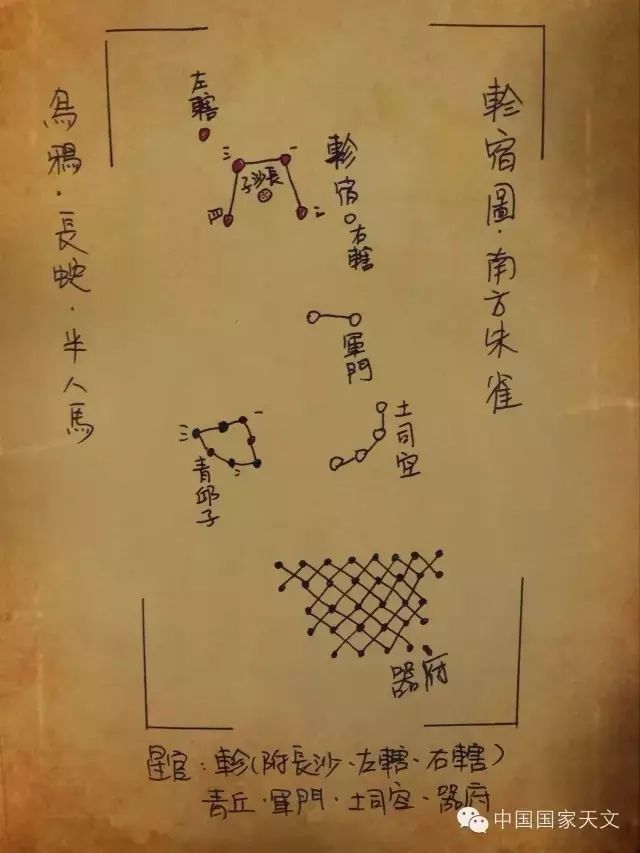 軫宿圖·南方朱雀
烏鴉·長蛇·半人馬
左轄
三
一
軫宿
長沙子
四
二
右轄
軍門
土司空
一
三
二
青邱子
器府
星官:軫(附長沙、左轄、右轄)
青丘·軍門·土司空·器府
中国国家天文